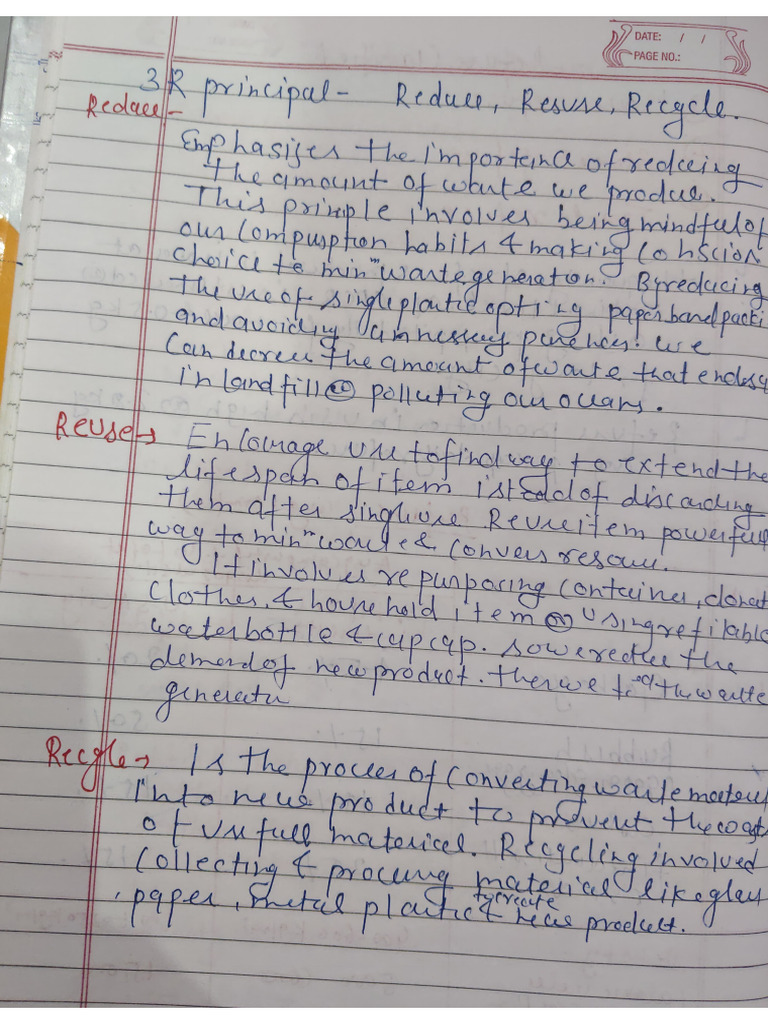 DATE: / /
PAGE NO.:
3R principal - Reduce, Resuse, Recycle.
Reduce -
Emphasizes the importance of reducing
the amount of waste we produce.
This principle involves being mindful of
our compusption habits & making conscion
choice to min^m waste generation. By reducing
the use of single plastic opting paper band packi
and avoiding unnessey purchces. we
can decrese the amount of waste that endesy
in landfill or polluting our oceans.
Reuse → Encourage use to find way to extend the
life span of item istead of discarding
them after single use. Reuse item powerful
way to min^m waste & convers resour.
It involves repurposing container, donat
clothes, & household item or using refilable
water bottle & cup cap. so we reduce the
demand of new product. there we the waste
generatn
Recyle → Is the process of converting waste materi
into new product to prevent the
of usefull material. Recycling involved
collecting & procesing material like glass
paper, metal plastic to create & new product.